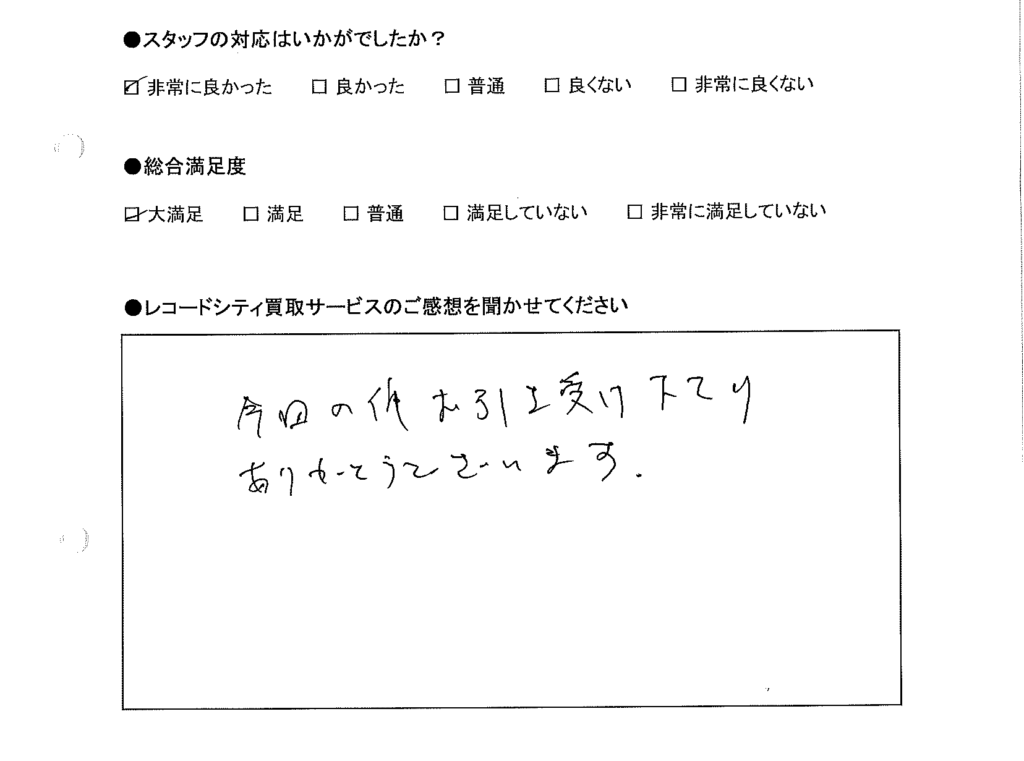 ●スタッフの対応はいかがでしたか？
☑ 非常に良かった □ 良かった □ 普通 □ 良くない □ 非常に良くない
●総合満足度
☑ 大満足 □ 満足 □ 普通 □ 満足していない □ 非常に満足していない
●レコードシティ買取サービスのご感想を聞かせてください
今回の件お引き受け下さり
ありがとうございます.